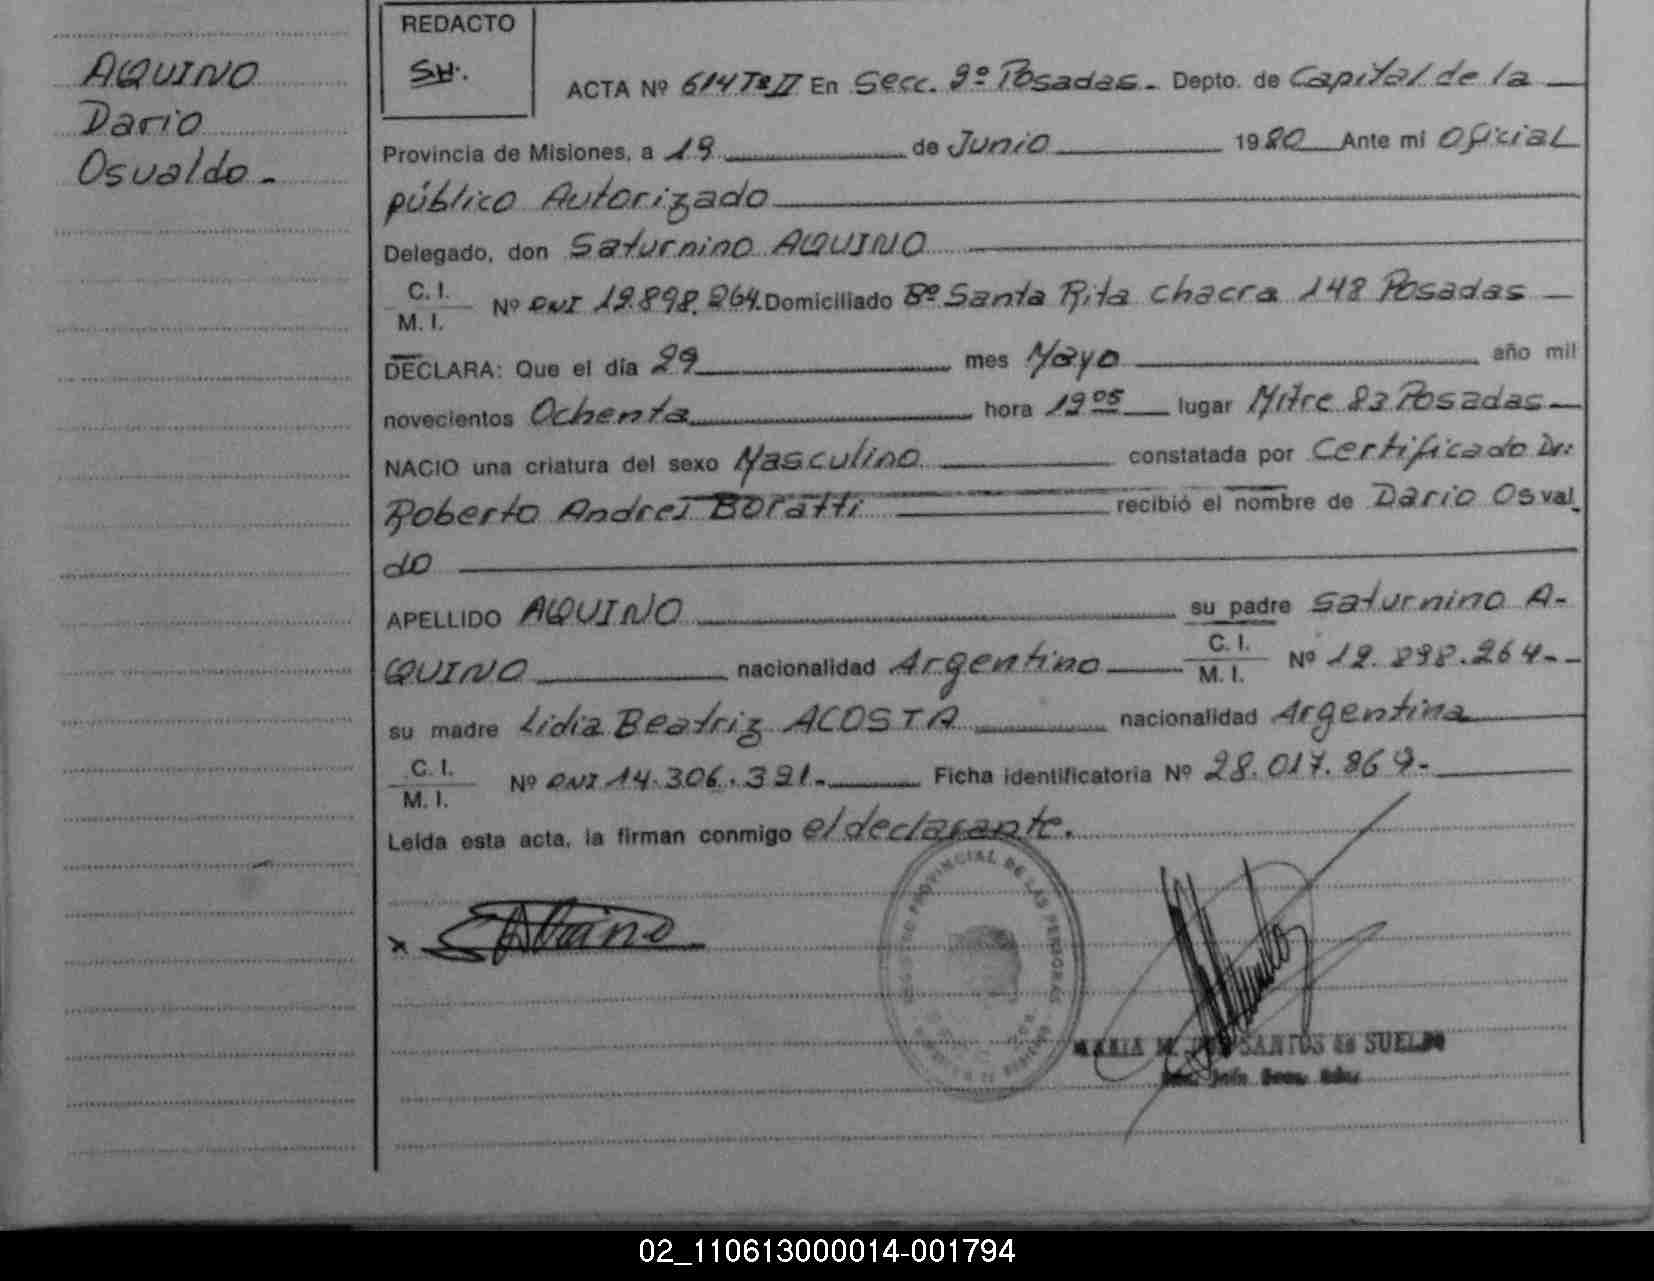 AQUINO
Dario
Osvaldo -
REDACTO
SH.
ACTA Nº 614 Tº II En Secc. 9º Posadas - Depto. de Capital de la
Provincia de Misiones, a 19 de Junio 1980 Ante mi Oficial
público Autorizado
Delegado, don Saturnino AQUINO
C. I.
M. I.
Nº DNI 12.898.264. Domiciliado Bº Santa Rita chacra 148 Posadas
DECLARA: Que el día 29 mes Mayo año mil
novecientos Ochenta hora 19 05 lugar Mitre 83 Posadas
NACIO una criatura del sexo Masculino constatada por Certificado Dr:
Roberto Andres Boratti recibió el nombre de Dario Osval
do
APELLIDO AQUINO su padre Saturnino A-
QUINO nacionalidad Argentino C. I. M. I. Nº 12.898.264-
su madre Lidia Beatriz ACOSTA nacionalidad Argentina
C. I.
M. I.
Nº DNI 14.306.391- Ficha identificatoria Nº 28.017.869-
Leída esta acta, la firman conmigo el declarante.
PROVINCIAL DE LAS PERSONAS
MARIA M. SANTOS de SUELDO
02_110613000014-001794